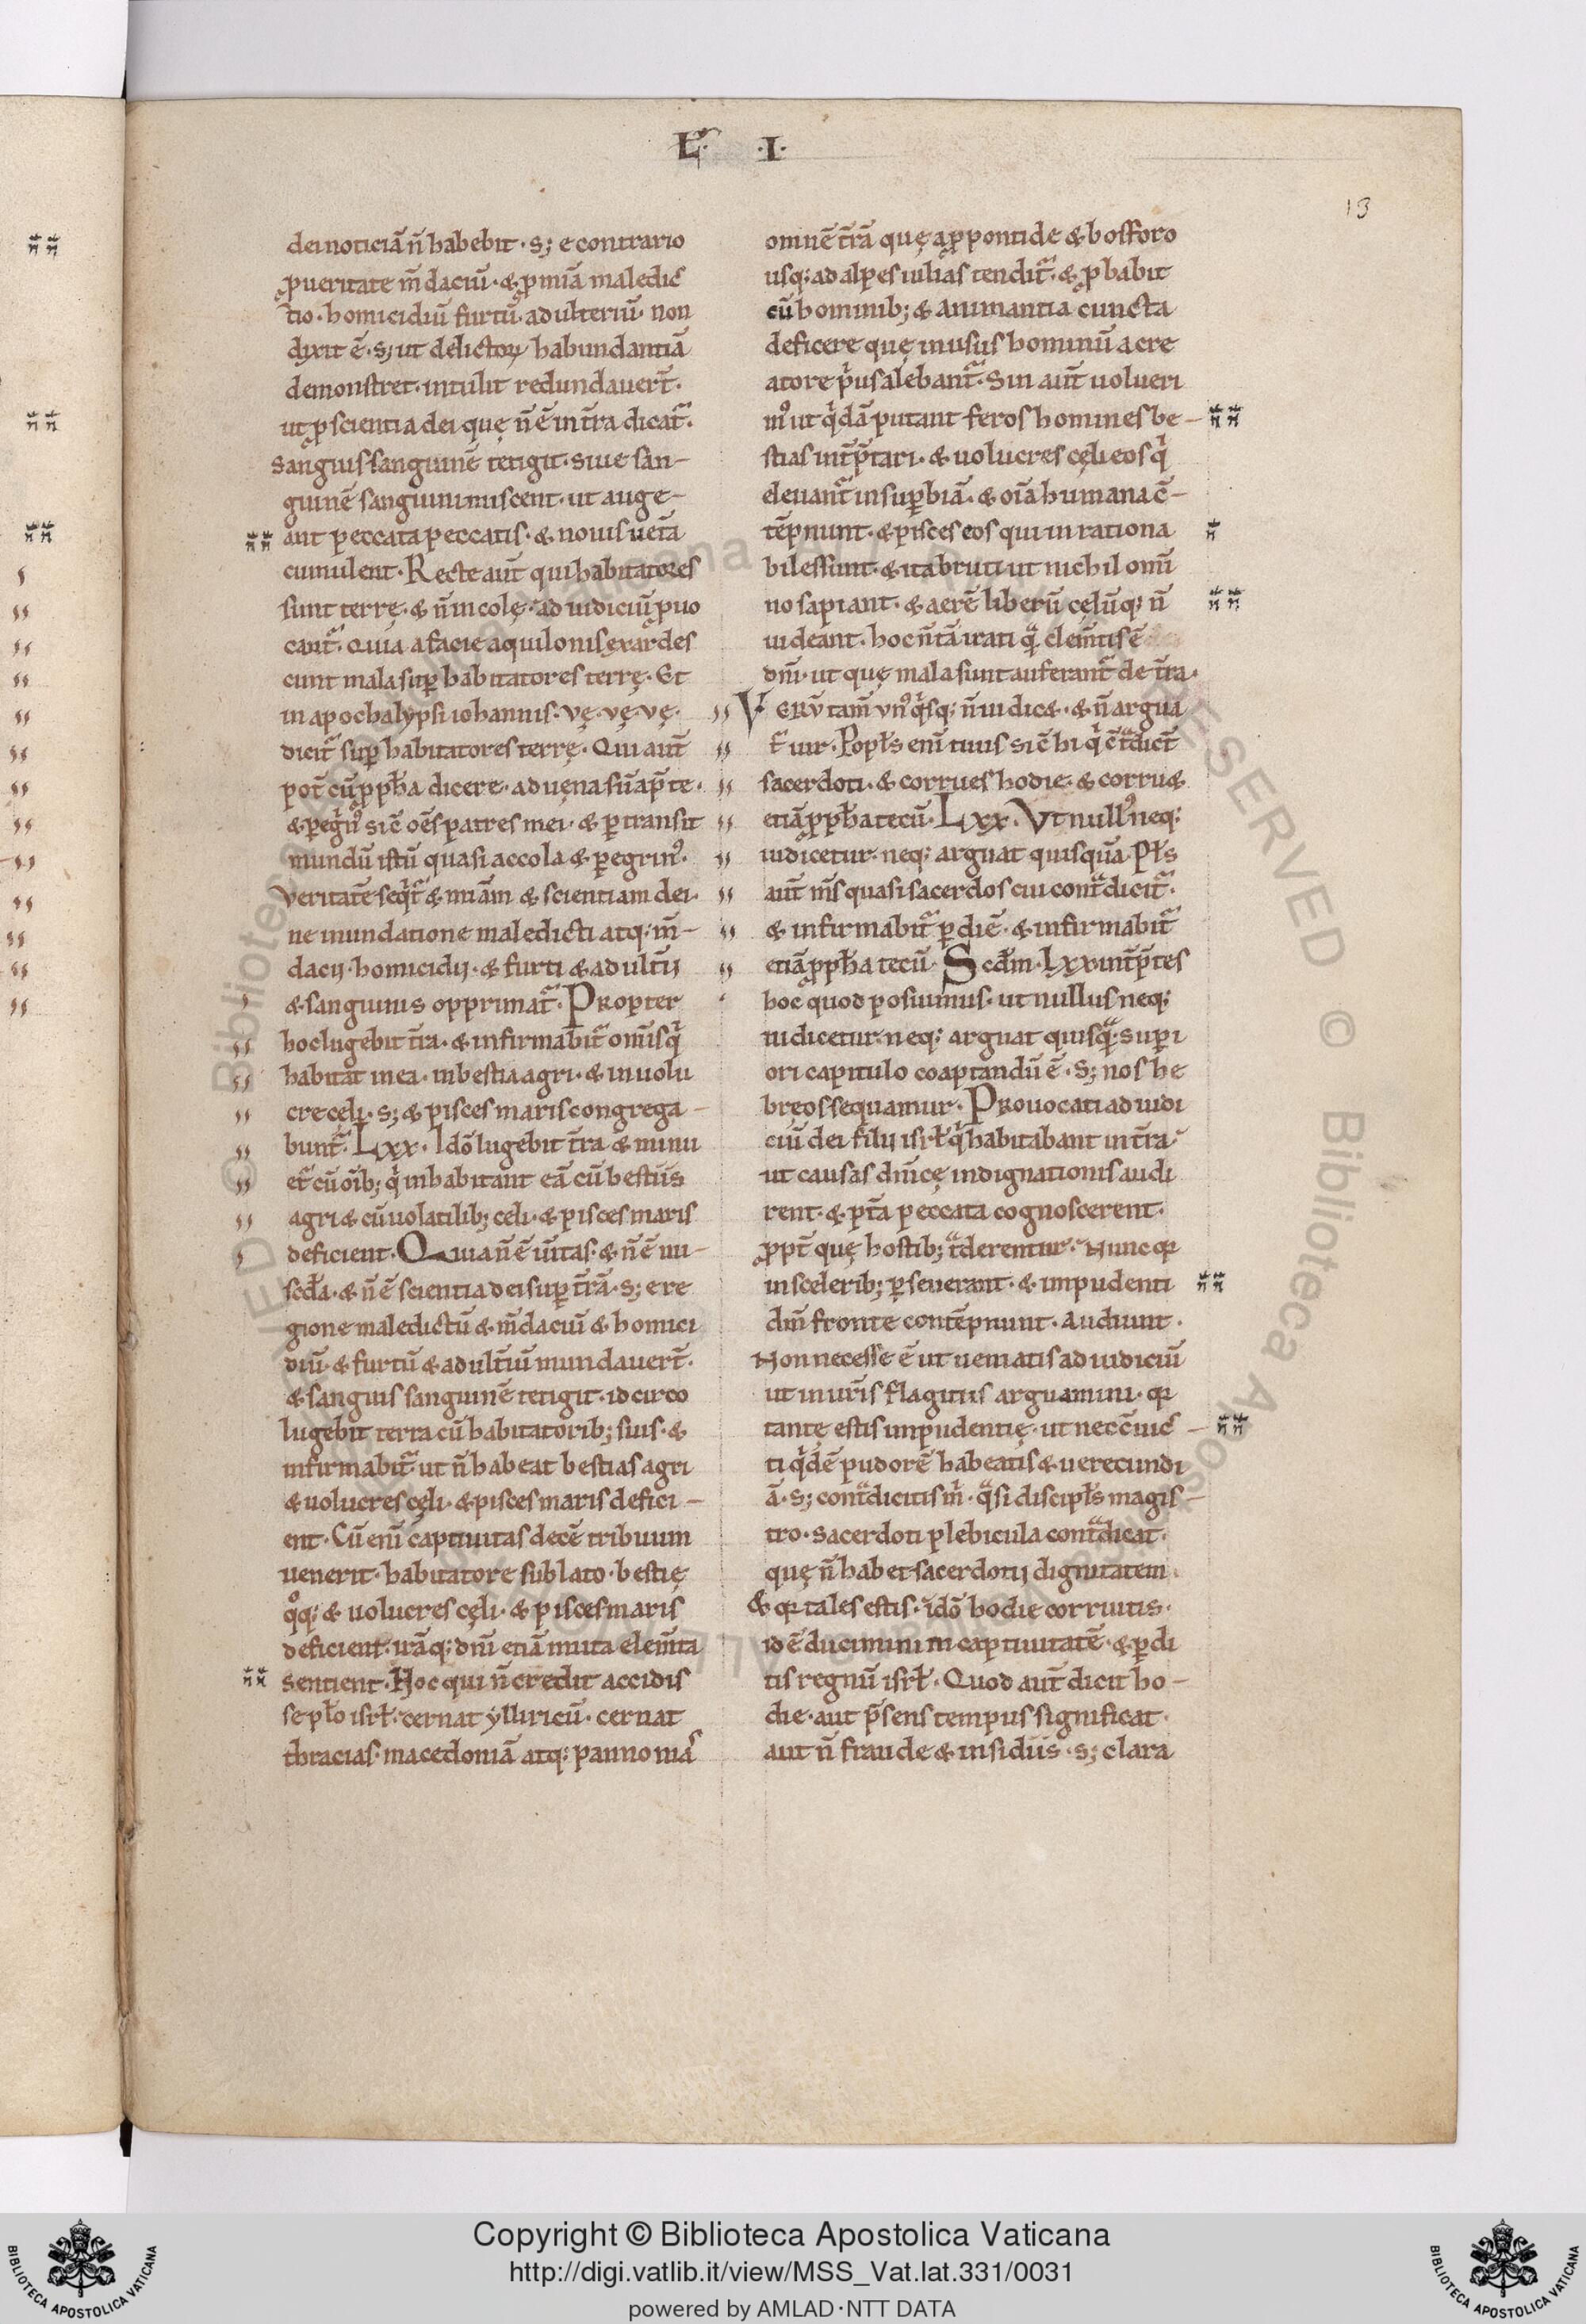 L. .I.
13
dei noticiā n̄ habebit · s; e contrario
p ueritate m̄daciū · & p miā maledic
tio · homicidiū furtū · adulteriū · non
dixit ē · s; ut delictoꝝ habundantiā
demonstret · intulit redundauer̄t ·
ut p scientia dei quę n̄ ē in t̄ra dicat᷑ ·
sanguis sanguinē tetigit · siue san-
guinē sanguini miscent · ut auge-
ant peccata peccatis · & nouis uet̄a
cumulent · Recte aut̄ qui habitatores
sunt terrę · & n̄ incolę · ad iudiciū ꝓuo
cant᷑ · quia a facie aquilonis exardes
cunt mala suꝑ habitatores terrę · Et
in apochalypsi iohannis · vę · vę · vę ·
dicit᷑ suꝑ habitatores terrę · Qui aut̄
pot̄ cū ꝓph̄a dicere · aduena sū ap̄ te ·
& ꝑegⁱnꝰ sic̄ oēs patres mei · & ꝑtransit
mundū istū quasi accola & ꝑegrinꝰ ·
veritatē seqⁱt᷑ & miām & scientiam dei ·
ne inundatione maledicti atq; m̄-
dacij · homicidij · & furti & adult̄ij
& sanguinis opprimat᷑ · Propter
hoc lugebit t̄ra · & infirmabit᷑ om̄is qⁱ
habitat in ea · in bestia agri · & in uolu
cre cęli · s; & pisces maris congrega-
bunt᷑ · Lxx · Idō lugebit t̄ra & minu
et᷑ cū oīb; qⁱ inhabitant eā cū bestiis
agri & cū uolatilib; celi · & pisces maris
deficient · Quia n̄ ē ūitas · & n̄ ē mi-
scd̄a · & n̄ ē scientia dei suꝑ t̄rā · s; e re
gione maledictū & m̄daciū & homici
diū · & furtū & adult̄iū inundauer̄t ·
& sanguis sanguinē tetigit · idcirco
lugebit terra cū habitatorib; suis · &
infirmabit᷑ ut n̄ habeat bestias agri
& uolucres cęli · & pisces maris defici-
ent · Cū enī captiuitas decē tribuum
uenerit · habitatore sublato · bestię
qᵒq; & uolucres cęli · & pisces maris
deficient · irāq; dn̄i etiā muta elem̄ta
sentient · Hoc qui n̄ credit accidis
se pl̄o isrl̄ · cernat ylliricū · cernat
thracias · macedoniā atq; pannoniā
omnē t̄rā quę a ꝓpontide & bosforo
usq; ad alpes iulias tendit᷑ · & ꝓbabit
cū hominib; & animantia cuncta
deficere quę in usus hominū a cre
atore pⁱus alebant᷑ · Sin aut̄ uolueri
mꝰ ut qⁱdā putant feros homines be-
stias int̄p̄tari · & uolucres cęli eos qⁱ
eleuant᷑ in suꝑbiā · & oīa humana c̄-
tēpnunt · & pisces eos qui in rationa
biles sunt · & ita bruti ut nichil om̄i
no sapiant · & aerē liberū cęlūq; n̄
uideant · hoc n̄ tā irati qᵃ clem̄tis ē
dn̄i · ut quę mala sunt auferant᷑ de t̄ra ·
Verū tam̄ vnꝰqⁱsq; n̄ iudic& · & n̄ argua
t᷑ uir · Popl̄s enī tuus sic̄ hi qⁱ c̄tᵃdict̄
sacerdoti · & corrues hodie · & corru&
etiā ꝓph̄a tecū · Lxx · Ut nullꝰ neq;
iudicetur · neq; arguat quisquā · Pl̄s
aut̄ m̄s quasi sacerdos cui contᵃdicit᷑ ·
& infirmabit᷑ ꝑ diē · & infirmabit᷑
etiā ꝓph̄a tecū · Scd̄m · Lxx int̄p̄tes
hoc quod posuimus · ut nullus neq;
iudicetur · neq; arguat quisqᵃ · supi
ori capitulo coaptandū ē · s; nos he
bręos sequamur · Prouocati ad iudi
ciū dei filii isrl̄ qⁱ habitabant in t̄ra ·
ut causas dn̄icę indignationis audi
rent · & p̄tā peccata cognoscerent ·
ꝓpt̄ quę hostib; tᵃderentur · Nunc qꝛ
in sceleribꝫ ꝑseuerant · & impudenti
dn̄m fronte contēpnunt · audiunt ·
Non necesse ē ut ueniatis ad iudiciū
ut in ur̄is flagitiis arguamini · qꝛ
tantę estis impudentię · ut nec c̄uic-
ti qⁱdē pudorē habeatis & uerecundi
ā · s; contᵃdicitis m̄ · qᵃsi discipl̄s magis-
tro · sacerdoti plebicula contᵃdicat ·
quę n̄ habet sacerdotij dignitatem ·
& qꝛ tales estis · idō hodie corruitis ·
id ē ducimini in captiuitatē · & ꝑdi
tis regnū isrl̄ · Quod aut̄ dicit ho-
die · aut p̄sens tempus significat ·
aut n̄ fraude & insidiis · s; clara
Copyright © Biblioteca Apostolica Vaticana
http://digi.vatlib.it/view/MSS_Vat.lat.331/0031
powered by AMLAD·NTT DATA
BIBLIOTECA APOSTOLICA VATICANA
BIBLIOTECA APOSTOLICA VATICANA